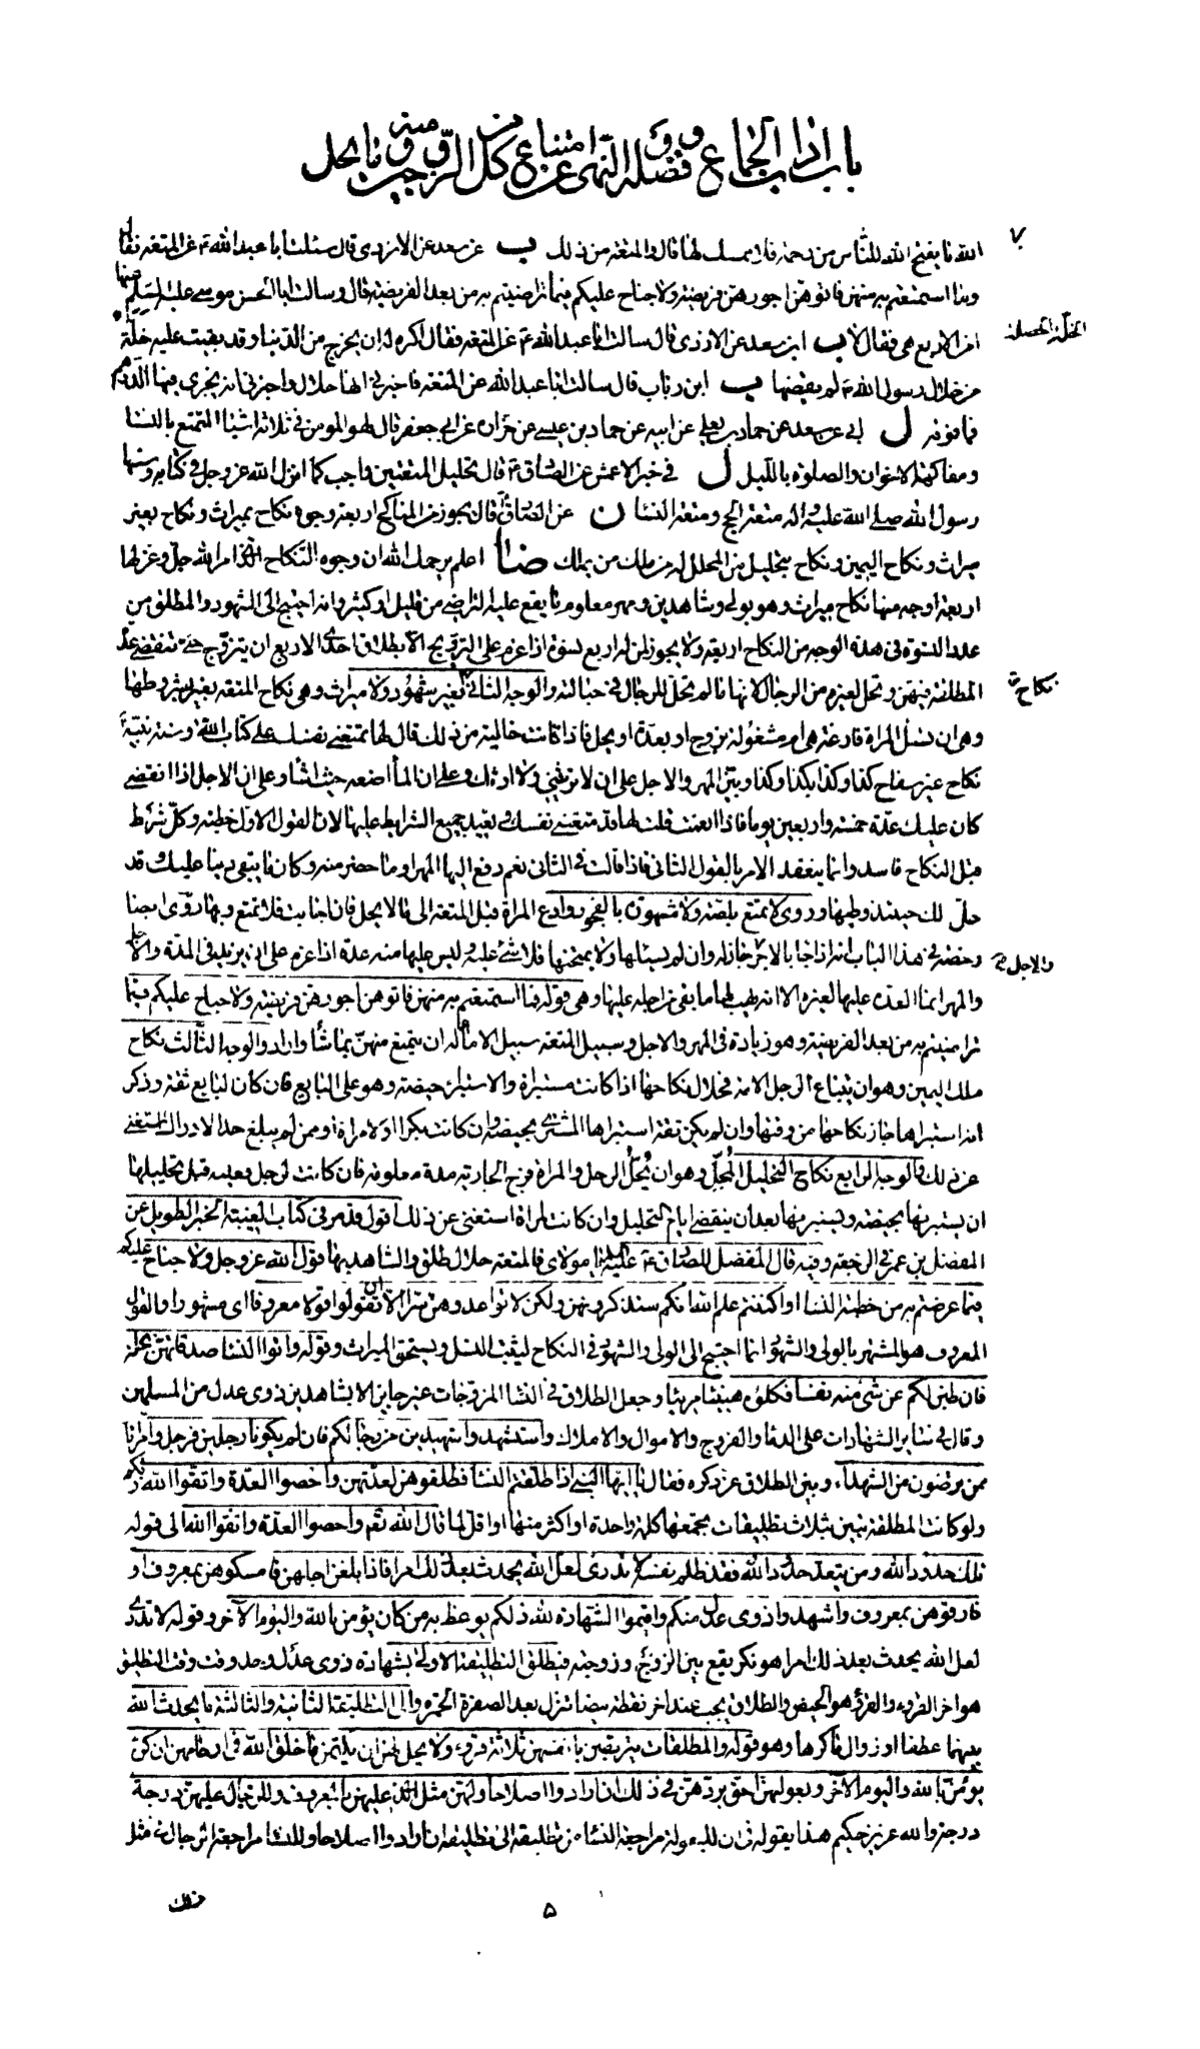 باب اداب الجماع وفضله والنهي عن امتناع كل من الزوجين منه وما يحل
٧
الله ما يفتح الله للناس من رحمة فلا ممسك لها قال والمتعة من ذلك ب عن سعد عن الازدي قال سئلت ابا عبد الله ع عن المتعة فقال
وما استمتعتم به منهن فاتوهن اجورهن فريضة ولا جناح عليكم فيما تراضيتم به من بعد الفريضة قال وسالت ابا الحسن موسى عليه السلم عنها
امن الاربع هي فقال لا ب ابن سعد عن الازدي قال سالت ابا عبد الله ع عن المتعة فقال اكره له ان يخرج من الدنيا وقد بقيت عليه خلة
الخلة الخصلة
من خلال رسول الله ص لم يقضها ب ابن رئاب قال سالت ابا عبد الله عن المتعة فاخبرني انها حلال واجزني انه يجزي فيها الدرهم
فما فوقه ل ابي عن سعد عن حماد بن يعلى عن ابيه عن حماد بن عيسى عن حران عن ابي جعفر قال لهو المومن في ثلاثة اشيا التمتع بالنسا
ومفاكهة الاخوان والصلوة بالليل ل في خبر الاعمش عن الصادق ع قال تحليل المتعتين واجب كما انزل الله عز وجل في كتابه وسنها
رسول الله صلى الله عليه واله متعة الحج ومتعة النسا ن عن الصادق ع قال يجوز من المناكح اربعة وجوه نكاح بميراث ونكاح بغير
ميراث ونكاح اليمين ونكاح بتحليل من المحلل له من ملك من يملك ضا اعلم يرحمك الله ان وجوه النكاح الذي امر الله جل وعز لها
اربعة اوجه منها نكاح ميراث وهو بولي وشاهدين ومهر معلوم ما يقع عليه التراضي من قليل او كثير وانه احتيج الى الشهود والمطلق من
عدد النسوة في هذا الوجه من النكاح اربعة ولا يجوز لمن له اربع نسوة اذا عزم على التزويج الا بطلاق احدى الاربع ان يتزوج حتى تنقضي عدة
المطلقة منهن وتحل لغيره من الرجال لانها ما لم تحل للرجال في حبالته والوجه الثاني بغير شهود ولا ميراث وهي نكاح المتعة بغير شروطها
نكاح
وهي ان تسئل المراة فارغة هي ام مشغولة بزوج او بعدة او بحل فاذا كانت خالية من ذلك قال لها تمتعني نفسك على كتاب الله وسنة نبيه
نكاح غير سفاح كذا وكذا بكذا وكذا وبين المهر والاجل على ان لا ترثيني ولا ارثك وعلى ان الما اضعه حيث اشا وعلى ان الاجل اذا انقضى
كان عليك عدة خمسة واربعين يوما فاذا انعمت قلت لها قد متعتني نفسك وتعيد جميع الشرايط عليها لان القول الاول خطبة وكل شرط
قبل النكاح فاسد وانما ينعقد الامر بالقول الثاني فاذا قالت في الثاني نعم دفع اليها المهر او ما حضر منه وكان ما يبقى دينا عليك وقد
حل لك حينئذ وطيها وروي لا تمتع بلصة ولا مشهورة بالفجور وادع المراة قبل المتعة الى ما لا يحل فان اجابت فلا تمتع بها وروي ايضا
رخصة في هذا الباب انه اذا جا بالاجر جاز له وان لم يسئلها ولا يمتحنها فلا شئ عليه وليس عليها منه عدة اذا عزم على ان يزيد في المدة والاجل
والاجل ح
والمهر انما العدة عليها لغيره الا انه يهب لها ما بقي من اجله عليها وهي قوله فما استمتعتم به منهن فاتوهن اجورهن فريضة ولا جناح عليكم فيما
تراضيتم به من بعد الفريضة وهو زيادة في المهر والاجل وسبيل المتعة سبيل الاما له ان يتمتع منهن بما شا واراد والوجه الثالث نكاح
ملك اليمين وهو ان يبتاع الرجل الامة فحلال نكاحها اذا كانت مستبراة والاستبراء حيضة وهو على البايع فان كان البايع ثقة وذكر
انه استبراها جاز نكاحها من وقتها وان لم يكن ثقة استبراها المشتري بحيضة وان كانت بكرا او لامراة او ممن لم يبلغ حد الادراك استغنى
عن ذلك والوجه الرابع نكاح التحليل المحل وهو ان يحل الرجل والمراة فرج الجارية مدة معلومة فان كانت لرجل فعليه قبل تحليلها
ان يستبريها بحيضة ويستبريها بعد ان ينقضي ايام التحليل وان كانت لمراة استغنى عن ذلك اقول قد مر في كتاب الغيبة الخبر الطويل عن
المفضل بن عمر في الرجعة وفيه قال المفضل للصادق ع يا مولاي فالمتعة حلال طلق والشاهد بها قول الله عز وجل ولا جناح عليكم
فيما عرضتم به من خطبة النسا او اكننتم علم الله انكم ستذكرونهن ولكن لا تواعدوهن سرا الا ان تقولوا قولا معروفا اي مشهورا والقول
المعروف هو المشتهر بالولي والشهود انما احتيج الى الولي والشهود في النكاح ليثبت النسل ويستحق الميراث وقوله واتوا النسا صدقاتهن نحلة
فان طبن لكم عن شئ منه نفسا فكلوه هنيئا مريئا وجعل الطلاق في النسا المزوجات غير جايز الا بشاهدين ذوي عدل من المسلمين
وقال في ساير الشهادات على الدماء والفروج والاموال والاملاك واستشهدوا شهيدين من رجالكم فان لم يكونا رجلين فرجل وامراتان
ممن ترضون من الشهداء وبين الطلاق عز ذكره فقال يا ايها النبي اذا طلقتم النسا فطلقوهن لعدتهن واحصوا العدة واتقوا الله ربكم
ولو كانت المطلقة تبين بثلاث تطليقات يجمعها كلمة واحدة او اكثر منها او اقل لما قال الله تعم واحصوا العدة واتقوا الله الى قوله
تلك حدود الله ومن يتعد حدود الله فقد ظلم نفسه لا تدري لعل الله يحدث بعد ذلك امرا فاذا بلغن اجلهن فامسكوهن بمعروف او
فارقوهن بمعروف واشهدوا ذوي عدل منكم واقيموا الشهادة لله ذلكم يوعظ به من كان يؤمن بالله واليوم الآخر وقوله لا تدري
لعل الله يحدث بعد ذلك امرا هو نكر يقع بين الزوج وزوجته فيطلق التطليقة الاولى بشهادة ذوي عدل وحد وقت وقت التطليق
هو اخر القروء والقرؤ هو الحيض والطلاق يجب عند اخر نقطة بيضا تنزل بعد الصفرة الحمرة والى التطليقة الثانية والثالثة ما يحدث الله
بينهما عطفا او زوال ما كرها وهو قوله والمطلقات يتربصن بانفسهن ثلاثة قروء ولا يحل لهن ان يكتمن ما خلق الله في ارحامهن ان كن
يؤمن بالله واليوم الآخر وبعولتهن احق بردهن في ذلك ان ارادوا اصلاحا ولهن مثل الذي عليهن بالمعروف وللرجال عليهن درجة
درجة والله عزيز حكيم هذا بقوله في ان للبعولة مراجعة النساء من تطليقة الى تطليقة ان ارادوا اصلاحا وللنسا مراجعة الرجال في مثل
ذلك
۵